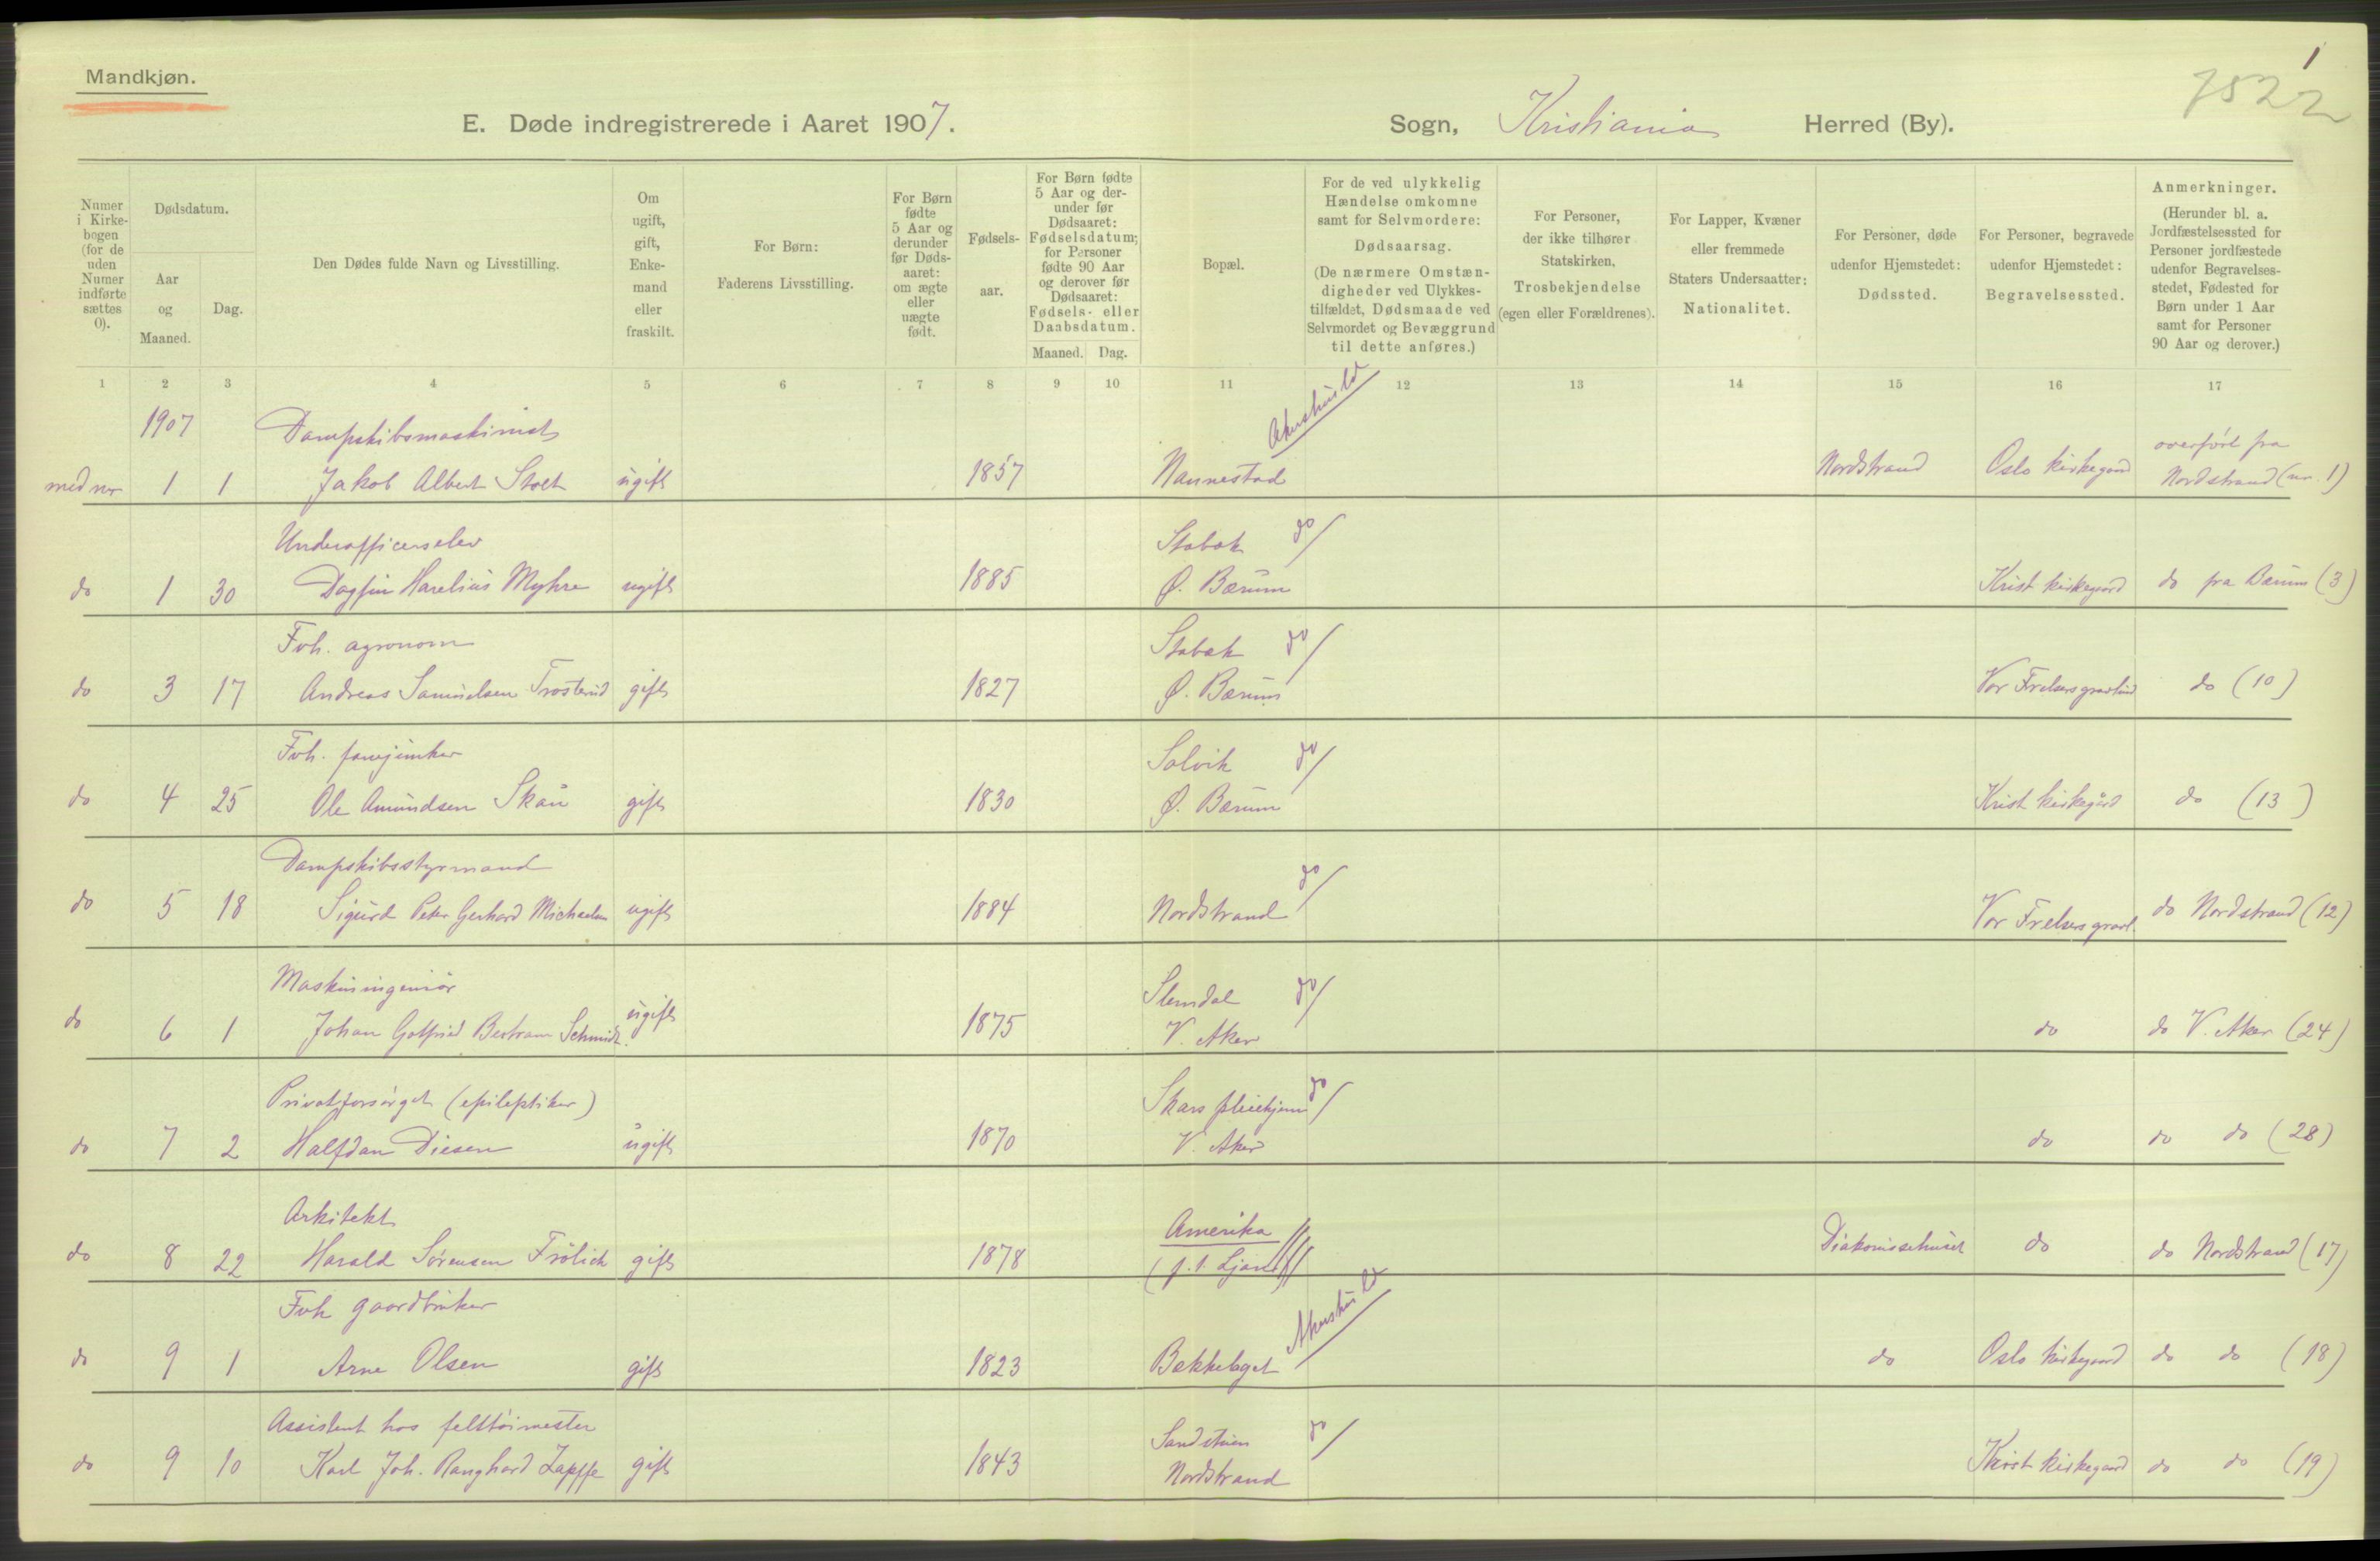 1
Mandkjøn.
7522
E. Døde indregistrerede i Aaret 1907. Sogn, Kristiania Herred (By).
Numer i Kirkebogen (for de uden Numer indførte sættes 0).
Dødsdatum.
Aar og Maaned.
Dag.
Den Dødes fulde Navn og Livsstilling.
Om ugift, gift, Enkemand eller fraskilt.
For Børn: Faderens Livsstilling.
For Børn fødte 5 Aar og derunder før Dødsaaret: om ægte eller uægte født.
Fødselsaar.
For Børn fødte 5 Aar og derunder før Dødsaaret: Fødselsdatum; for Personer fødte 90 Aar og derover før Dødsaaret: Fødsels- eller Daabsdatum.
Maaned. Dag.
Bopæl.
For de ved ulykkelig Hændelse omkomne samt for Selvmordere: Dødsaarsag. (De nærmere Omstændigheder ved Ulykkestilfældet, Dødsmaade ved Selvmordet og Bevæggrund til dette anføres.)
For Personer, der ikke tilhører Statskirken, Trosbekjendelse (egen eller Forældrenes).
For Lapper, Kvæner eller fremmede Staters Undersaatter: Nationalitet.
For Personer, døde udenfor Hjemstedet: Dødssted.
For Personer, begravede udenfor Hjemstedet: Begravelsessted.
Anmerkninger. (Herunder bl. a. Jordfæstelsessted for Personer jordfæstede udenfor Begravelsesstedet, Fødested for Børn under 1 Aar samt for Personer 90 Aar og derover.)
1 2 3 4 5 6 7 8 9 10 11 12 13 14 15 16 17
1907 Dampskibsmaskinist Akershus overført fra
1 1 Jakob Albert ugift 1857 Nannestad Nordstrand Oslo kirkegaard Nordstrand (nr. 1)
Underofficerselev Stabæk do
do 1 30 Dagfin Harelius Myhre ugift 1885 Ø. Bærum Krist kirkegaard do fra Bærum (3)
Fvh. agronom Stabæk do
do 3 17 Andreas Samuelsen Trosterud gift 1827 Ø. Bærum Vor Frelsers gravlund do (10)
Fvh. fanejunker Solvik do
do 4 25 Ole Amundsen Skau gift 1830 Ø. Bærum Krist kirkegård do (13)
Dampskibsstyrmand do
do 5 18 Sigurd Peter Gerhard Michaelsen ugift 1884 Nordstrand Vor Frelsers gravl. do Nordstrand (12)
Maskiningeniør Slemdal do
do 6 1 Johan Gotfried Bertram Schmidt. ugift 1875 V. Aker do do V. Aker (24)
Privatforsørget (epileptiker) Skars pleiehjem do
do 7 2 Halfdan Diesen ugift 1870 V. Aker do do do (28)
Arkitekt Amerika
do 8 22 Harald Sørensen Frölich gift 1878 (f. t. Ljan) Diakonissehuset do do Nordstrand (17)
Fvh gaardbruker Akershus
do 9 1 Arne Olsen gift 1823 Bækkelaget do Oslo kirkegaard do do (18)
Assistent hos felttøimester do
do 9 10 Karl Joh. Ranghard Zapffe gift 1843 Nordstrand Krist kirkegaard do do (19)